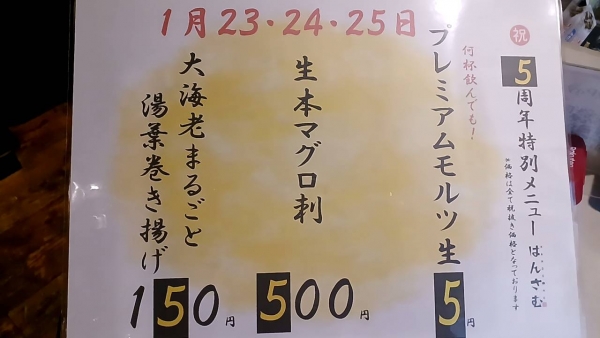 1月23・24・25日
祝
5周年特別メニュー はんさむ
※価格は全て税抜き価格となっております
何杯飲んでも！
プレミアムモルツ生
5円
生本マグロ刺
500円
大海老まるごと
湯葉巻き揚げ
150円